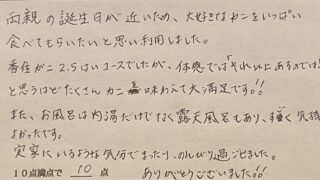 両親の誕生日が近いため、大好きなカニをいっぱい
食べてもらいたいと思い利用しました。
香住ガニ2.5はいコースでしたが、体感では「それ以上あるのでは!
と思うほどたくさんカニを味わえて大満足です!!
また、お風呂は内湯だけでなく露天風呂もあり、すごく気持
よかったです。
実家にいるような気分でまったり、のんびり過ごせました。
10点満点で 10 点 ありがとうございました!!